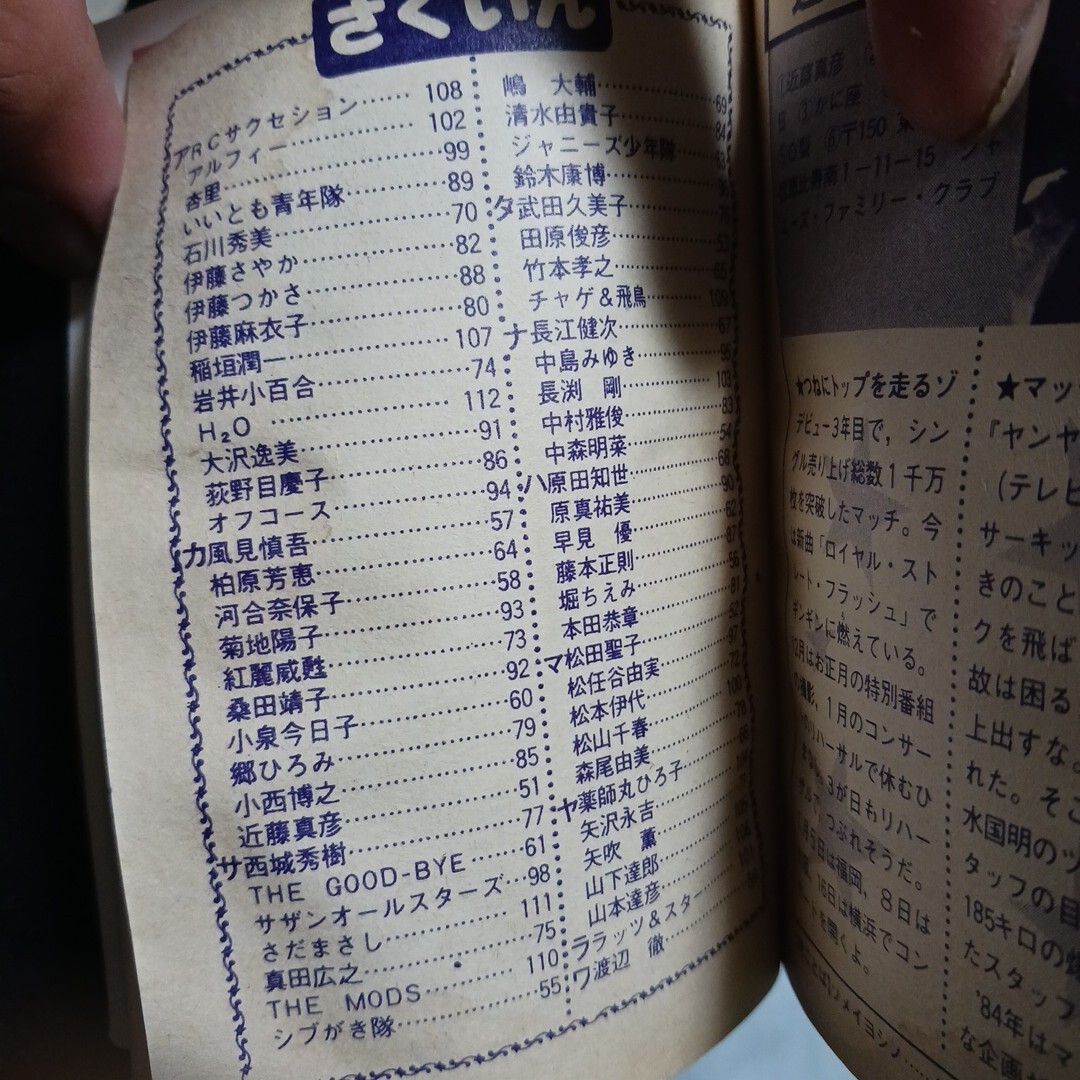 さくいん
ア RCサクセション……108
アルフィー……102
杏里……99
いいとも青年隊……89
石川秀美……70
伊藤さやか……82
伊藤つかさ……88
伊藤麻衣子……80
稲垣潤一……107
岩井小百合……74
H₂O……112
大沢逸美……91
荻野目慶子……86
オフコース……94
カ 風見慎吾……57
柏原芳恵……64
河合奈保子……58
菊地陽子……93
紅麗威甦……73
桑田靖子……92
小泉今日子……60
郷ひろみ……79
小西博之……85
近藤真彦……51
サ 西城秀樹……77
THE GOOD-BYE……61
サザンオールスターズ…98
さだまさし……111
真田広之……75
THE MODS……110
シブがき隊……55
嶋 大輔……69
清水由貴子……84
ジャニーズ少年隊……
鈴木康博……
タ 武田久美子……
田原俊彦……
竹本孝之……
チャゲ&飛鳥……109
ナ 長江健次……67
中島みゆき……95
長渕 剛……103
中村雅俊……83
中森明菜……54
ハ 原田知世……68
原真祐美……90
早見 優……62
藤本正則……87
堀ちえみ……56
本田恭章……81
マ 松田聖子……52
松任谷由実……97
松本伊代……72
松山千春……100
森尾由美……
ヤ 薬師丸ひろ子……
矢沢永吉……
矢吹 薫……
山下達郎……
山本達彦……
ラ ラッツ&スター……
ワ 渡辺 徹……
近藤真彦
③かに座
⑥〒150
南1-11-15 ジャ
ニーズ・ファミリー・クラブ
★つねにトップを走るゾ
デビュー3年目で, シン
グル売り上げ総数1千万
枚を突破したマッチ。今
は新曲「ロイヤル・スト
レート・フラッシュ」で
ギンギンに燃えている。
12月はお正月の特別番組
1月のコンサー
リハーサルで休むひ
3が日もリハー
つぶれそうだ。
5日は福岡, 8日は
16日は横浜でコン
を開くよ。
★マッ
『ヤンヤ
(テレビ
サーキッ
きのこと
クを飛ば
故は困る
上出すな。
れた。そこ
水国明のツ
タッフの目
185キロの
たスタッフ
'84年はマ
な企画